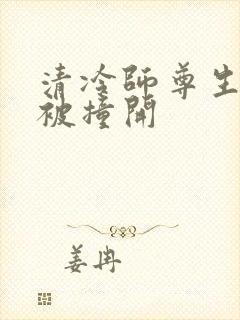 清冷师尊生
被撞開
姜冉